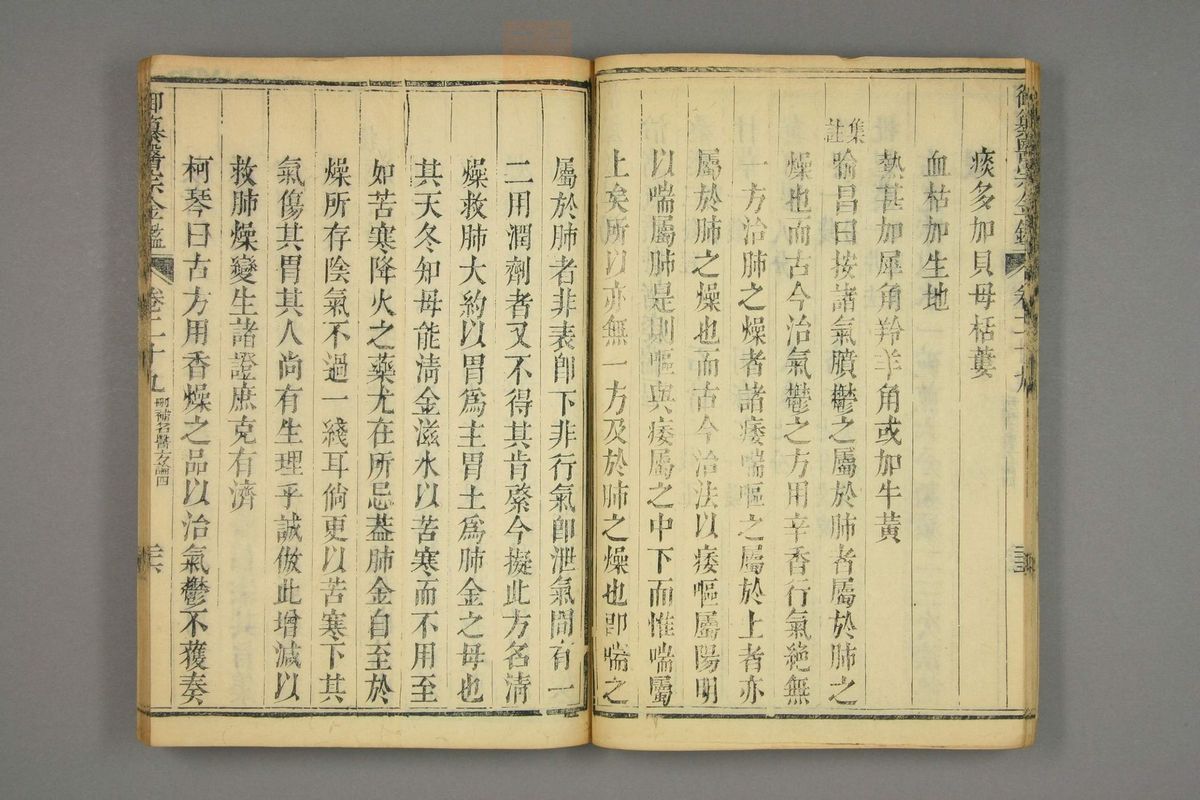 痰多加貝母栝蔞
血枯加生地
熱甚加犀角羚羊角或加牛黃
集註 喻昌曰按諸氣膹鬱之屬於肺者屬於肺之
燥也而古今治氣鬱之方用辛香行氣絶無
一方治肺之燥者諸痿喘嘔之屬於上者亦
屬於肺之燥也而古今治法以痿嘔屬陽明
以喘屬肺是則嘔與痿屬之中下而惟喘屬
上矣所以亦無一方及於肺之燥也即喘之
屬於肺者非表卽下非行氣卽泄氣間有一
二用潤劑者又不得其肯綮今擬此方名淸
燥救肺大約以胃爲主胃土爲肺金之母也
其天冬知母能淸金滋水以苦寒而不用至
如苦寒降火之藥尤在所忌葢肺金自至於
燥所存陰氣不過一綫耳倘更以苦寒下其
氣傷其胃其人尚有生理乎誠倣此增減以
救肺燥變生諸證庶克有濟
柯琴曰古方用香燥之品以治氣鬱不獲奏
御纂醫宗金鑑
卷二十九
刪補名醫方論四
三六